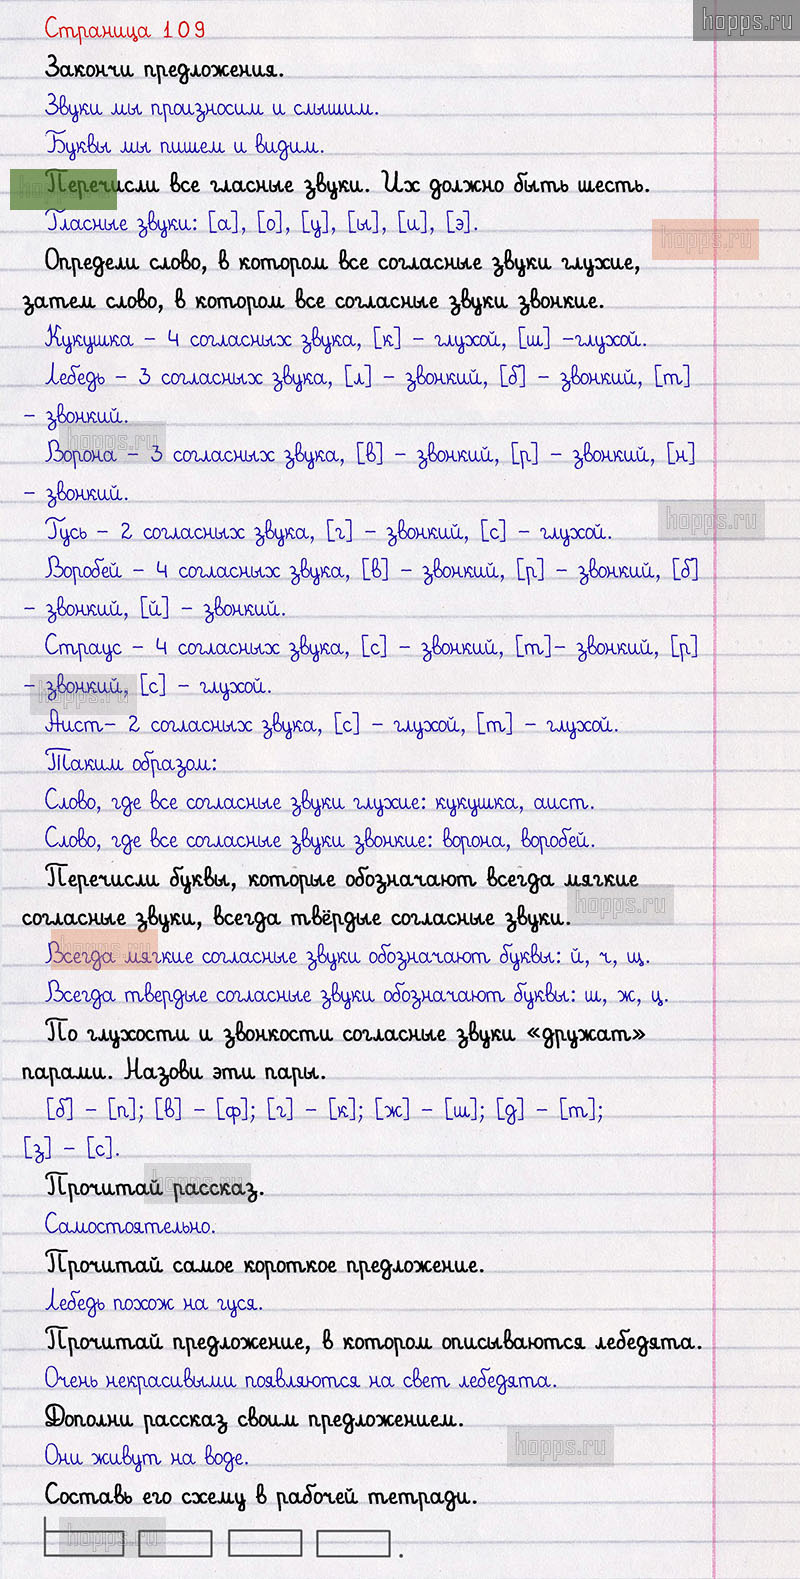 hopps.ru
Страница 109
Закончи предложения.
Звуки мы произносим и слышим.
Буквы мы пишем и видим.
Перечисли все гласные звуки. Их должно быть шесть.
hopps.ru
Гласные звуки: [а], [о], [у], [ы], [и], [э].
hopps.ru
Определи слово, в котором все согласные звуки глухие,
затем слово, в котором все согласные звуки звонкие.
Кукушка – 4 согласных звука, [к] – глухой, [ш] –глухой.
Лебедь – 3 согласных звука, [л] – звонкий, [б] – звонкий, [т]
– звонкий.
hopps.ru
Ворона – 3 согласных звука, [в] – звонкий, [р] – звонкий, [н]
– звонкий.
hopps.ru
Гусь – 2 согласных звука, [г] – звонкий, [с] – глухой.
Воробей – 4 согласных звука, [в] – звонкий, [р] – звонкий, [б]
– звонкий, [й] – звонкий.
Страус – 4 согласных звука, [с] – звонкий, [т]– звонкий, [р]
– звонкий, [с] – глухой.
hopps.ru
Аист– 2 согласных звука, [с] – глухой, [т] – глухой.
Таким образом:
Слово, где все согласные звуки глухие: кукушка, аист.
Слово, где все согласные звуки звонкие: ворона, воробей.
Перечисли буквы, которые обозначают всегда мягкие
согласные звуки, всегда твёрдые согласные звуки.
hopps.ru
hopps.ru
Всегда мягкие согласные звуки обозначают буквы: й, ч, щ.
Всегда твердые согласные звуки обозначают буквы: ш, ж, ц.
По глухости и звонкости согласные звуки «дружат»
парами. Назови эти пары.
[б] – [п]; [в] – [ф]; [г] – [к]; [ж] – [ш]; [д] – [т];
[з] – [с].
Прочитай рассказ.
hopps.ru
Самостоятельно.
Прочитай самое короткое предложение.
Лебедь похож на гуся.
Прочитай предложение, в котором описываются лебедята.
Очень некрасивыми появляются на свет лебедята.
Дополни рассказ своим предложением.
hopps.ru
Они живут на воде.
Составь его схему в рабочей тетради.
hopps.ru
.